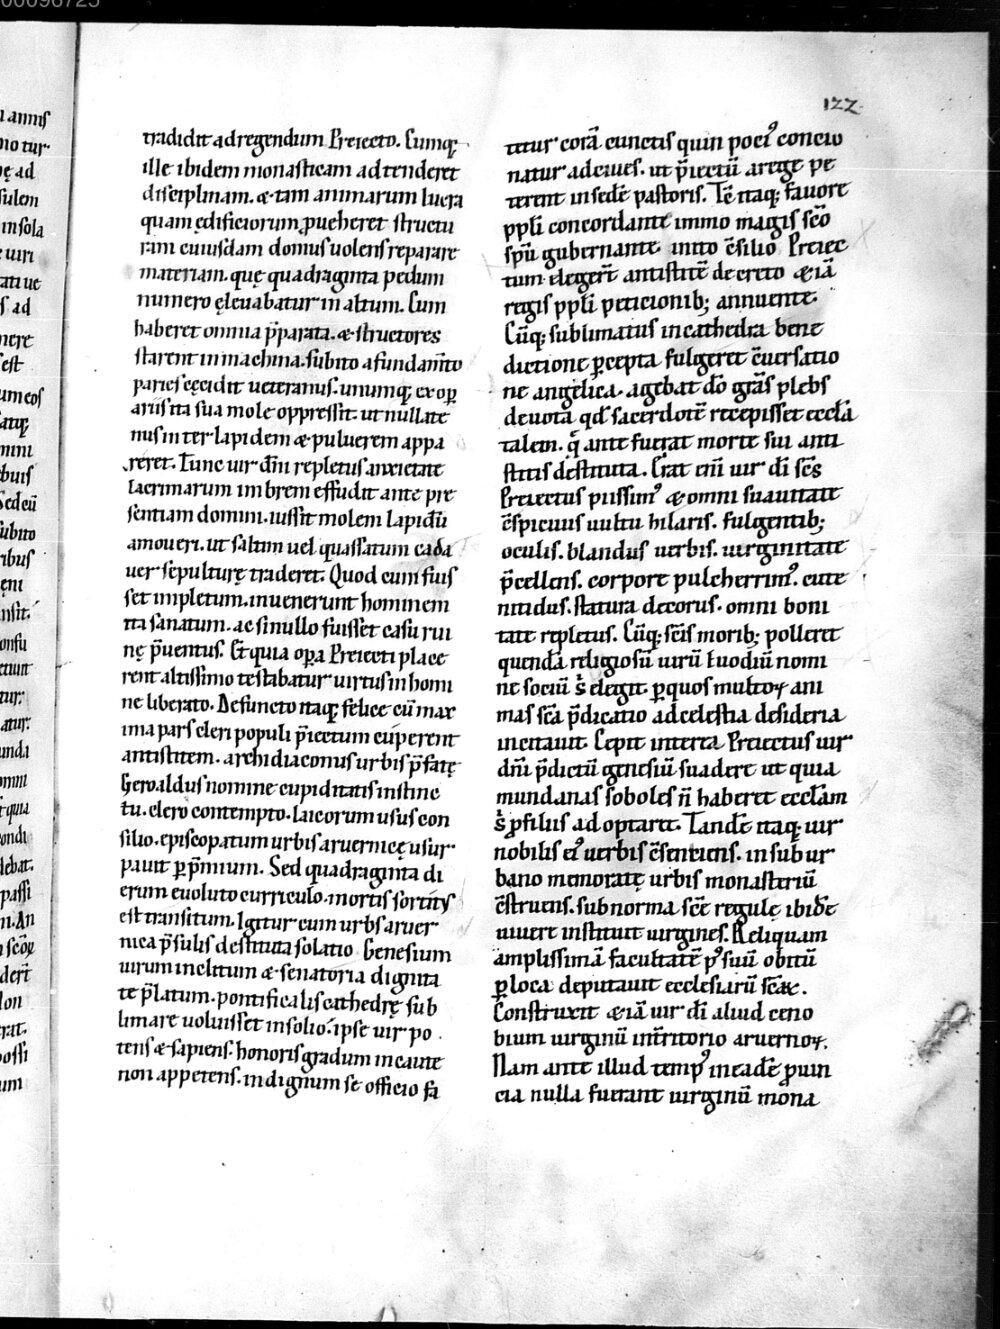 122
tradidit ad regendum Preiecto. Cumq;
ille ibidem monasticam ad tenderet
disciplinam. & tam animarum lucra
quam edificiorum ꝓueheret structu
ram cuiusdam domus uolens reparare
materiam. quę quadraginta pedum
numero ęleuabatur in altum. Cum
haberet omnia p̄parata. & structores
starent in machina. subito a fundam̄to
paries cęcidit ueteranus. unumq; ex oꝑ
ariis ita sua mole oppressit. ut nullate
nus inter lapidem & puluerem appa
reret. Tunc uir dn̄i repletus anxietate
lacrimarum imbrem effudit ante pre
sentiam domini. iussit molem lapidū
amoueri. ut saltim uel quassatum cada
uer sepulturę traderet. Quod cum fuis
set impletum. inuenerunt hominem
ita sanatum. ac si nullo fuisset casu rui
nę p̄uentus. Et quia oꝑa Preiecti place
rent altissimo testabatur uirtus in homi
ne liberato. Defuncto itaq; felice cū max
ima pars cleri populi p̄iectum cuperent
antistitem. archidiaconus urbis p̄fatę
Geroaldus nomine cupiditatis instinc
tu. clero contempto. laicorum usus con
silio. episcopatum urbis aruernicę usur
pauit ꝑ p̄mium. Sed quadraginta di
erum euoluto curriculo. mortis sortitus
est transitum. Igitur cum urbs aruer
nica p̄sulis destituta solatio Genesium
uirum inclitum & senatoria dignita
te p̄latum. pontificalis cathedrę sub
limare uoluisset in solio. ipse uir po
tens & sapiens. honoris gradum incaute
non appetens. indignum se officio fa
tetur corā cunctis quin pocꝰ concio
natur ad ciues. ut p̄iectū arege pe
terent in sedē pastoris. Tē itaq; fauore
ppl̄i concordante immo magis sc̄o
sp̄u gubernante. inito c̄silio Preiec
tum elegert̄ antistitē decreto & iā
regis ppl̄i peticionib; annuente.
Cūq; sublimatus in cathedra bene
dictione ꝑcepta fulgeret c̄uersatio
ne angelica. agebat dō grās plebs
deuota qd̄ sacerdotē recepisset eccl̄a
talem. q̄ ante fuerat morte sui anti
stitis destituta. Erat eni uir dī sc̄s
Preiectus piissimꝰ & omni suauitate
c̄spicuus uultu hilaris. fulgentib;
oculis. blandus uerbis. uirginitate
p̄cellens. corpore pulcherrimꝰ. cute
nitidus. statura decorus. omni boni
tate repletus. Cūq; sc̄is morib; polleret
quendā religiosū uirū Euodiū nomi
ne sociū s̄ elegit ꝑ quos multoꝝ ani
mas sc̄a p̄dicatio ad celestia desideria
incitauit. Cepit interea Preiectus uir
dn̄i p̄dictū genesiū suadere ut quia
mundanas soboles n̄ haberet eccl̄am
s̄ ꝓ filiis adoptaret. Tandē itaq; uir
nobilis eiꝰ uerbis c̄sentiens. in subur
bano memoratę urbis monasteriū
c̄struens. sub norma sc̄ē regulę ibidē
uiuere instituit uirgines. Reliquam
amplissimā facultatē pꝰ suū obitū
ꝑ loca deputauit ecclesiarū sc̄aꝝ.
Construxit & iā uir dī aliud ceno
bium uirginū intritorio aruernoꝝ.
Nam ante illud tempꝰ in eadē ꝓuin
cia nulla fuerant uirginū mona